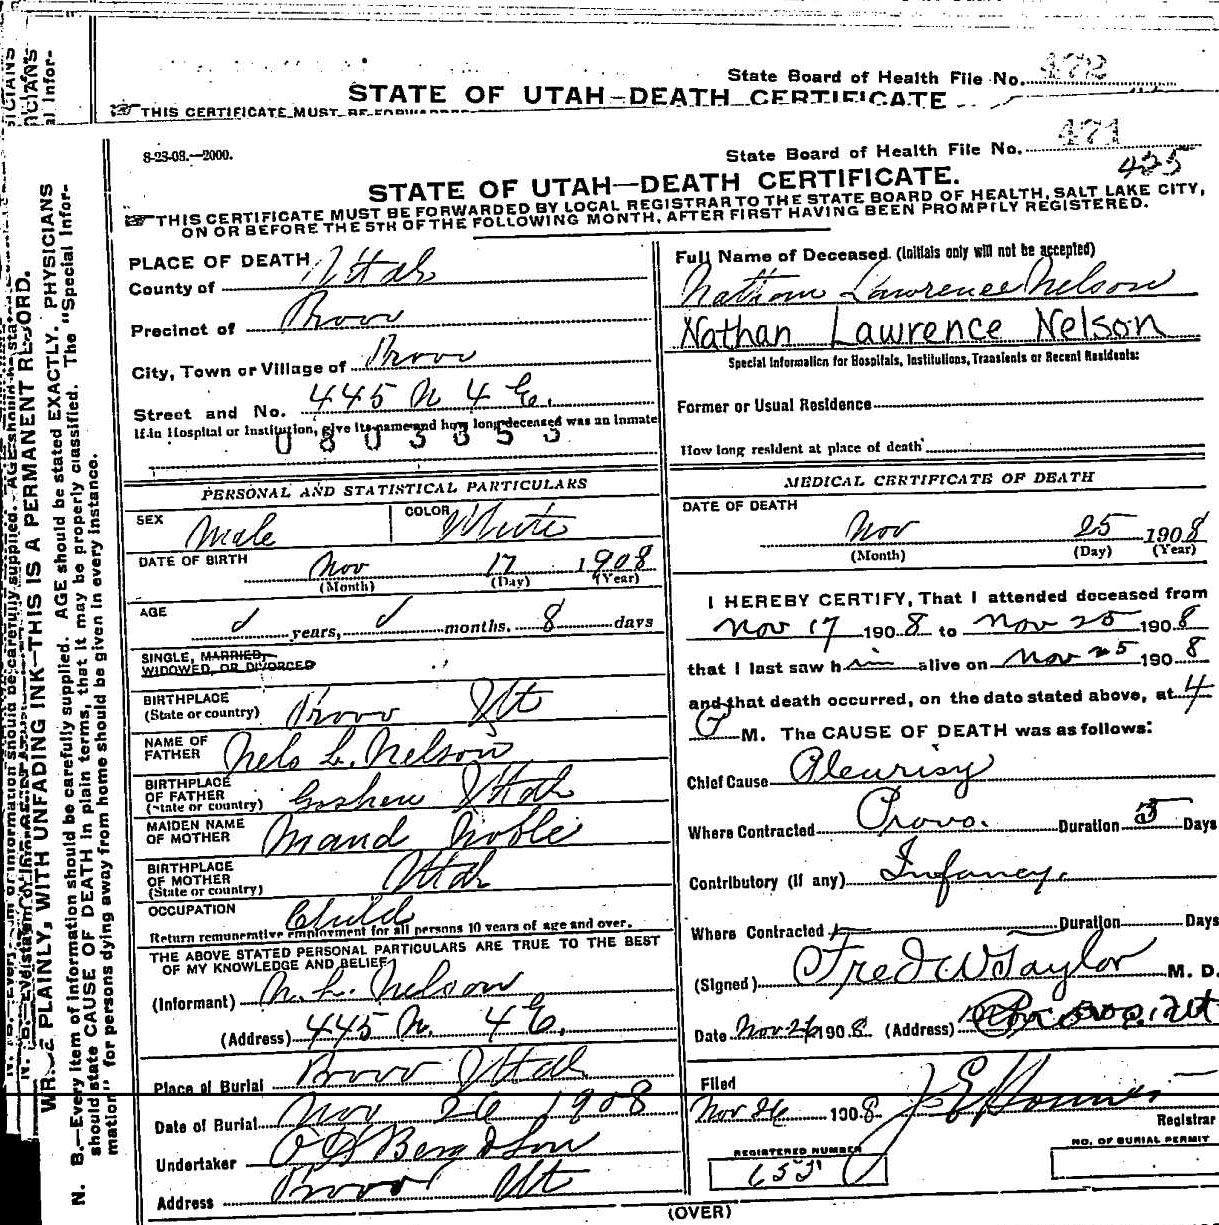 State Board of Health File No. 472
STATE OF UTAH—DEATH CERTIFICATE
THIS CERTIFICATE MUST BE FORWARDED
8-23-08.—2000.
State Board of Health File No. 471
425
STATE OF UTAH—DEATH CERTIFICATE.
THIS CERTIFICATE MUST BE FORWARDED BY LOCAL REGISTRAR TO THE STATE BOARD OF HEALTH, SALT LAKE CITY,
ON OR BEFORE THE 5TH OF THE FOLLOWING MONTH, AFTER FIRST HAVING BEEN PROMPTLY REGISTERED.
WRITE PLAINLY, WITH UNFADING INK—THIS IS A PERMANENT RECORD.
N. B.—Every item of information should be carefully supplied. AGE should be stated EXACTLY. PHYSICIANS
should state CAUSE OF DEATH in plain terms, that it may be properly classified. The "Special Infor-
mation" for persons dying away from home should be given in every instance.
PLACE OF DEATH
County of Utah
Precinct of Provo
City, Town or Village of Provo
Street and No. 445 N 4 E.
If in Hospital or Institution, give its name and how long deceased was an inmate
0803353
PERSONAL AND STATISTICAL PARTICULARS
SEX Male COLOR White
DATE OF BIRTH Nov 17 1908
(Month) (Day) (Year)
AGE years, months, 8 days
SINGLE, MARRIED,
WIDOWED, OR DIVORCED
BIRTHPLACE
(State or country) Provo Ut
NAME OF
FATHER Nels L. Nelson
BIRTHPLACE
OF FATHER
(State or country) Goshen Utah
MAIDEN NAME
OF MOTHER Maud Noble
BIRTHPLACE
OF MOTHER
(State or country) Utah
OCCUPATION Child
Return remunerative employment for all persons 10 years of age and over.
THE ABOVE STATED PERSONAL PARTICULARS ARE TRUE TO THE BEST
OF MY KNOWLEDGE AND BELIEF
(Informant) N. L. Nelson
(Address) 445 N. 4 E.
Place of Burial Provo Utah
Date of Burial Nov 26 1908
Undertaker O H Berg & Son
Address Provo Ut
Full Name of Deceased. (Initials only will not be accepted)
Nathan Lawrence Nelson
Nathan Lawrence Nelson
Special Information for Hospitals, Institutions, Transients or Recent Residents:
Former or Usual Residence
How long resident at place of death
MEDICAL CERTIFICATE OF DEATH
DATE OF DEATH
Nov 25 1908
(Month) (Day) (Year)
I HEREBY CERTIFY, That I attended deceased from
Nov 17 1908 to Nov 25 1908
that I last saw him alive on Nov 25 1908
and that death occurred, on the date stated above, at 4
P M. The CAUSE OF DEATH was as follows:
Chief Cause Pleurisy
Where Contracted Provo. Duration 3 Days
Contributory (if any) Infancy.
Where Contracted Duration Days
(Signed) Fred W Taylor M. D.
Date Nov 26 1908 (Address) Provo, Ut
Filed
Nov 26 1908
Registrar
REGISTERED NUMBER
NO. OF BURIAL PERMIT
(OVER)